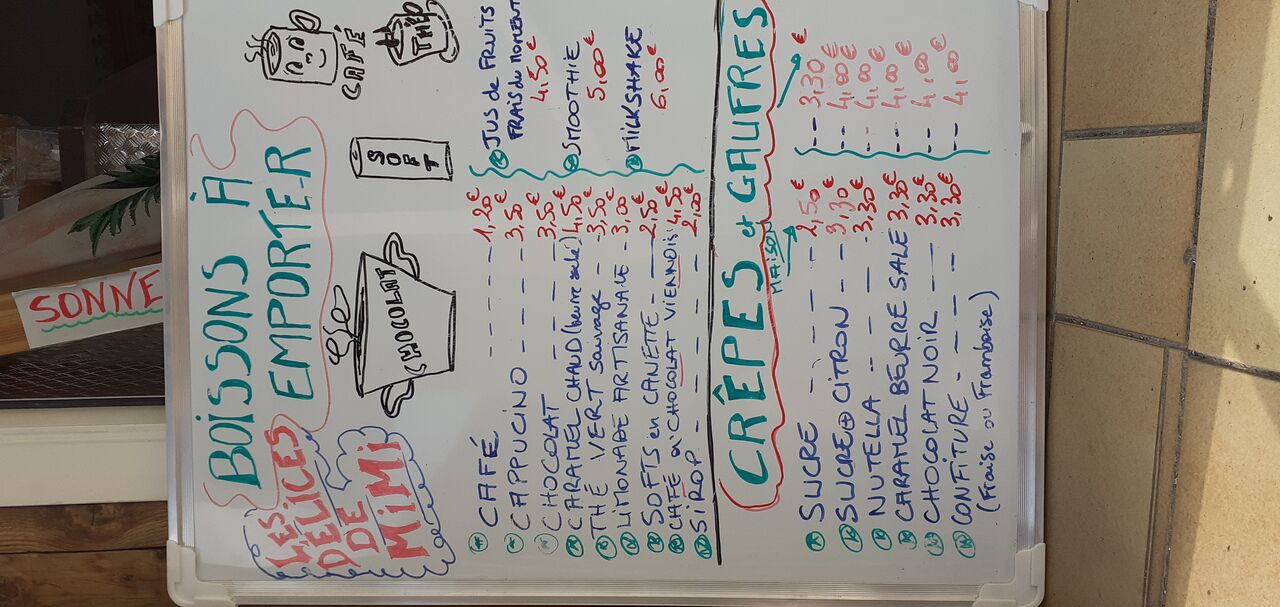 BOISSONS À
EMPORTER
LES
DÉLICES
DE
MiMi
CHOCOLAT
SOFT
CAFÉ
THÉ
CAFÉ - - - - - 1,20€
CAPPUCINO - - - - 3,50€
CHOCOLAT - - - - 3,50€
CARAMEL CHAUD (beurre salé) 4,50€
THÉ VERT sauvage - - 3,50€
LiMONADE ARTISANALE - 3,00€
SOFTS en CANETTE - - 2,50€
CAFÉ ou CHOCOLAT VIENNOIS 4,50€
SiROP - - - - - 2,00€
JUS de FRUITS
FRAIS du MOMENT
4,50€
SMOOTHIE
5,00€
MilKSHAKE
6,00€
CRÊPES et GAUFRES
MAiSON
SUCRE - - - - 2,50€ - - 3,30€
SUCRE + CiTRON - - 3,30€ - - 4,00€
NUTELLA - - - - 3,30€ - - 4,00€
CARAMEL BEURRE SALÉ 3,30€ - - 4,00€
CHOCOLAT NOiR - - 3,30€ - - 4,00€
CONFiTURE - - - - 3,30€ - - 4,00€
(Fraise ou Framboise)
SONNE